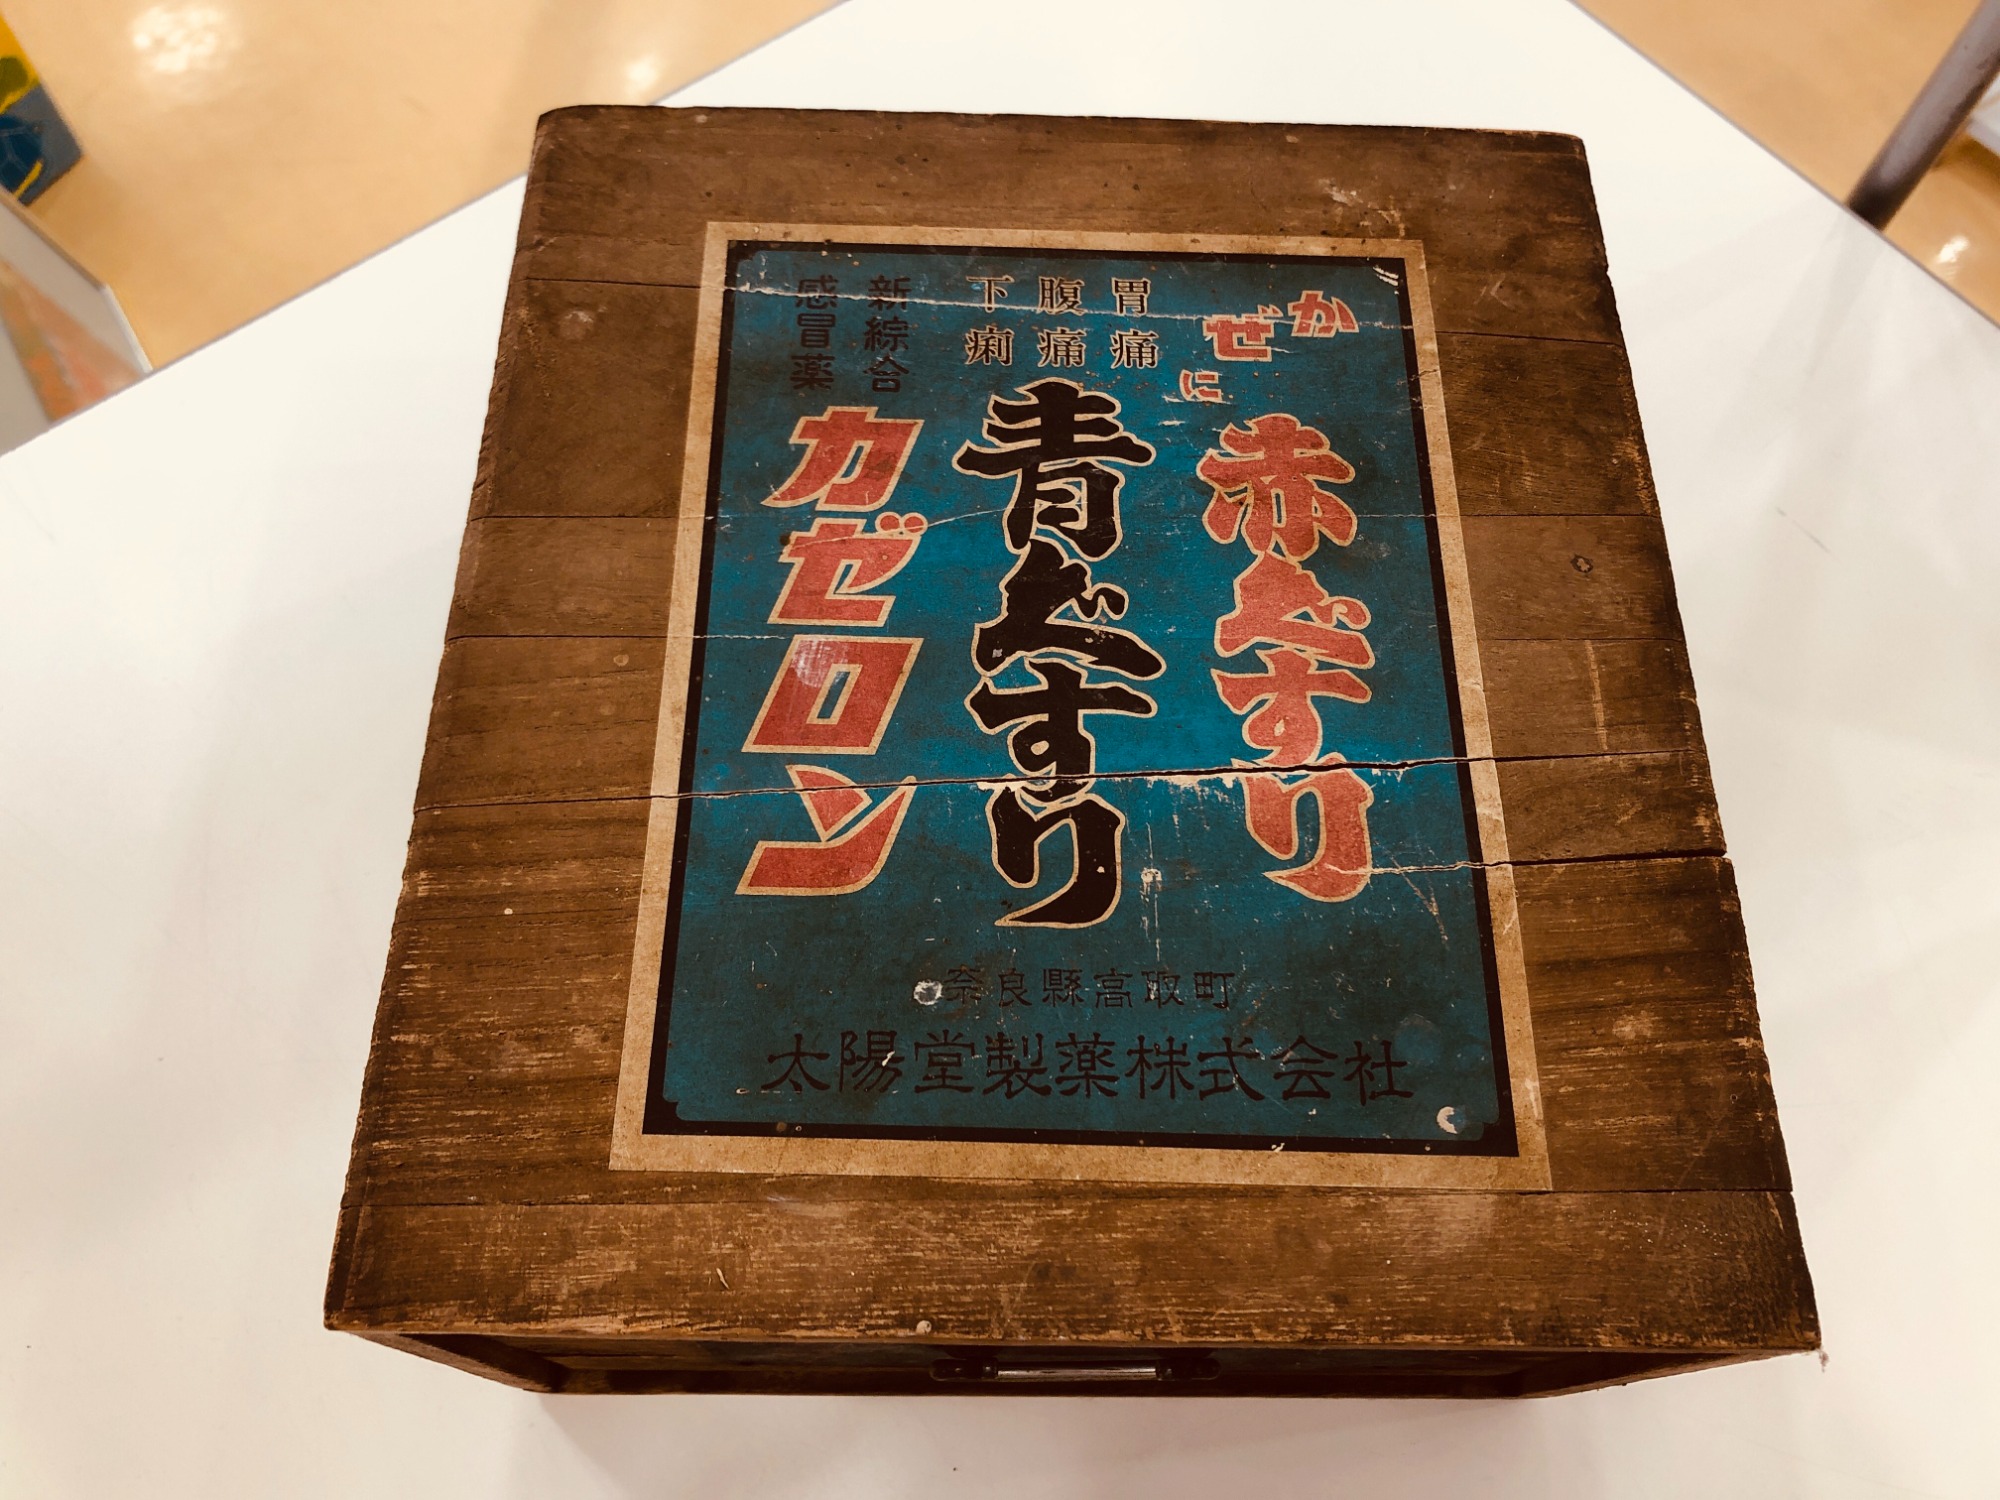 かぜに
赤ぐすり
胃痛
腹痛
下痢
青ぐすり
新綜合
感冒薬
カゼロン
奈良縣高取町
太陽堂製薬株式会社